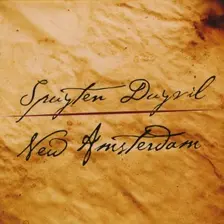 Spuyten Duyvil
New Amsterdam